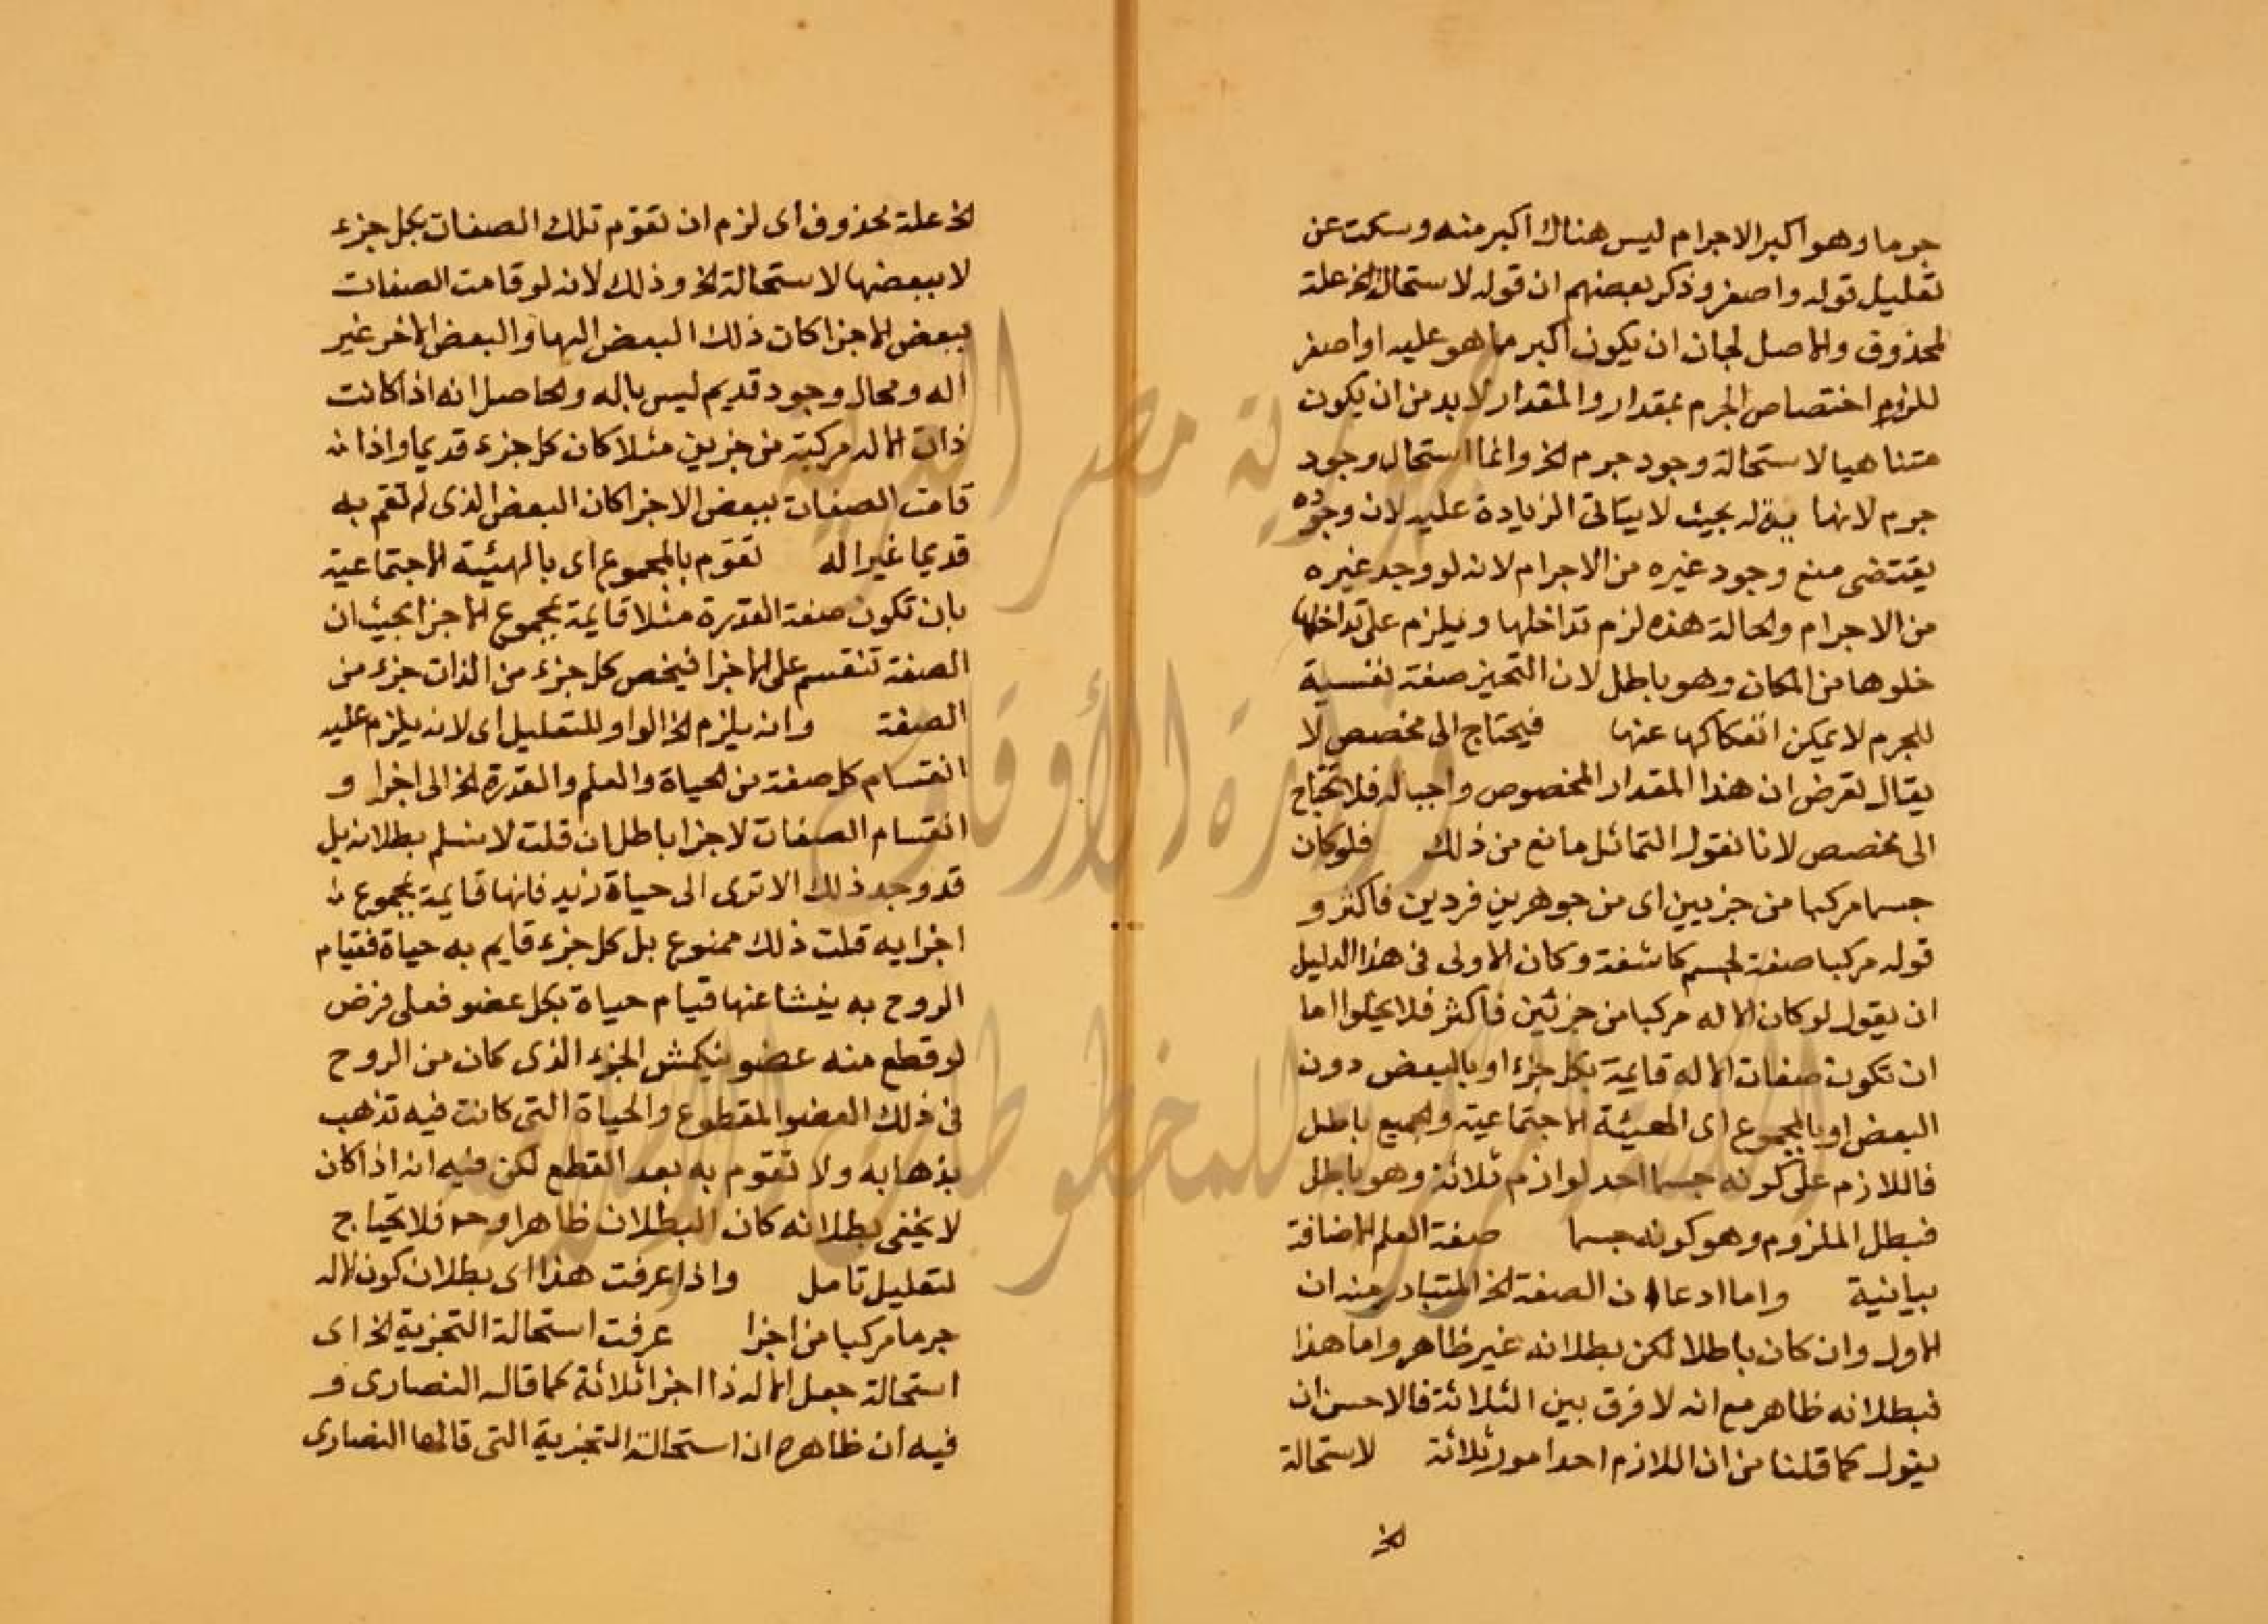 جرما وهو اكبر الاجرام ليس هناك اكبر منه وسكت عن
تعليل قوله واصغر وذكر بعضهم ان قوله لاستحالة الخ علة
لمحذوف والاصل لجاز ان يكون اكبر مما هو عليه او اصغر
للزوم اختصاص الجرم بمقدار والمقدار لا بد من ان يكون
متناهيا لاستحالة وجود جرم الخ وانما استحال وجود
جرم لا نهاية له بحيث لا يتاتى الزيادة عليه لان وجوده
يقتضى منع وجود غيره من الاجرام لانه لو وجد غيره
من الاجرام والحالة هذه لزم تداخلها ويلزم على تداخلها
خلوها من المكان وهو باطل لان التحيز صفة نفسية
للجرم لا يمكن انفكاكها عنها فيحتاج الى مخصص لا
يقال نفرض ان هذا المقدار المخصوص واجب له فلا يحتاج
الى مخصص لانا نقول التماثل مانع من ذلك فلو كان
جسما مركبا من جزيين اى من جوهرين فردين فاكثر و
قوله مركبا صفة لجسم كاشفة وكان الاولى فى هذا الدليل
ان يقول لو كان الاله مركبا من جزئين فأكثر فلا يخلوا اما
ان تكون صفات الاله قايمة بكل جزء او بالبعض دون
البعض او بالمجموع اى الهيئة الاجتماعية والجميع باطل
فاللازم على كونه جسما احد لوازم ثلاثة وهو باطل
فبطل الملزوم وهو كونه جسما صفة العلم الاضافة
بيانية واما ادعا ان الصفة الخ المتبادر منه ان
الاول وان كان باطلا لكن بطلانه غير ظاهر واما هذا
فبطلانه ظاهر مع انه لا فرق بين الثلاثة فالاحسن ان
يقول كما قلنا من ان اللازم احد امور ثلاثة لاستحالة
الخ
الخ علة لمحذوف اى لزم ان تقوم تلك الصفات بكل جزء
لا ببعضها لاستحالة الخ وذلك لانه لو قامت الصفات
ببعض الاجزا كان ذلك البعض الها والبعض الاخر غير
اله ومحال وجود قديم ليس باله والحاصل انه اذا كانت
ذات الاله مركبة من جزين مثلا كان كل جزء قديما واذا
قامت الصفات ببعض الاجزا كان البعض الذى لم تقم به
قديما غير اله تقوم بالمجموع اى بالهيئة الاجتماعية
بان تكون صفة القدرة مثلا قايمة بمجموع الاجزا بحيث ان
الصفة تنقسم على الاجزا فيخص كل جزء من الذات جزء من
الصفة وانه يلزم الخ الواو للتعليل اى لانه يلزم عليه
انقسام كل صفة من الحياة والعلم والقدرة الخ الى اجزا و
انقسام الصفات لاجزا باطل ان قلت لا نسلم بطلانه بل
قد وجد ذلك الا ترى الى حياة زيد فانها قايمة بمجموع
اجزايه قلت ذلك ممنوع بل كل جزء قايم به حياة فقيام
الروح به ينشا عنها قيام حياة بكل عضو فعلى فرض
لو قطع منه عضو ينكمش الجزء الذى كان من الروح
فى ذلك العضو المقطوع والحياة التى كانت فيه تذهب
بذهابه ولا تقوم به بعد القطع لكن فيه انه اذا كان
لا يخفى بطلانه كان البطلان ظاهرا وح فلا يحتاج
لتعليل تامل واذا عرفت هذا اى بطلان كون الاله
جرما مركبا من اجزا عرفت استحالة التجزية الخ اى
استحالة جعل الاله ذا اجزا ثلاثة كما قاله النصارى و
فيه ان ظاهره ان استحالة التجزية التى قالها النصارى
جمهورية مصر العربية
وزارة الأوقاف
المكتبة المركزية للمخطوطات الإسلامية